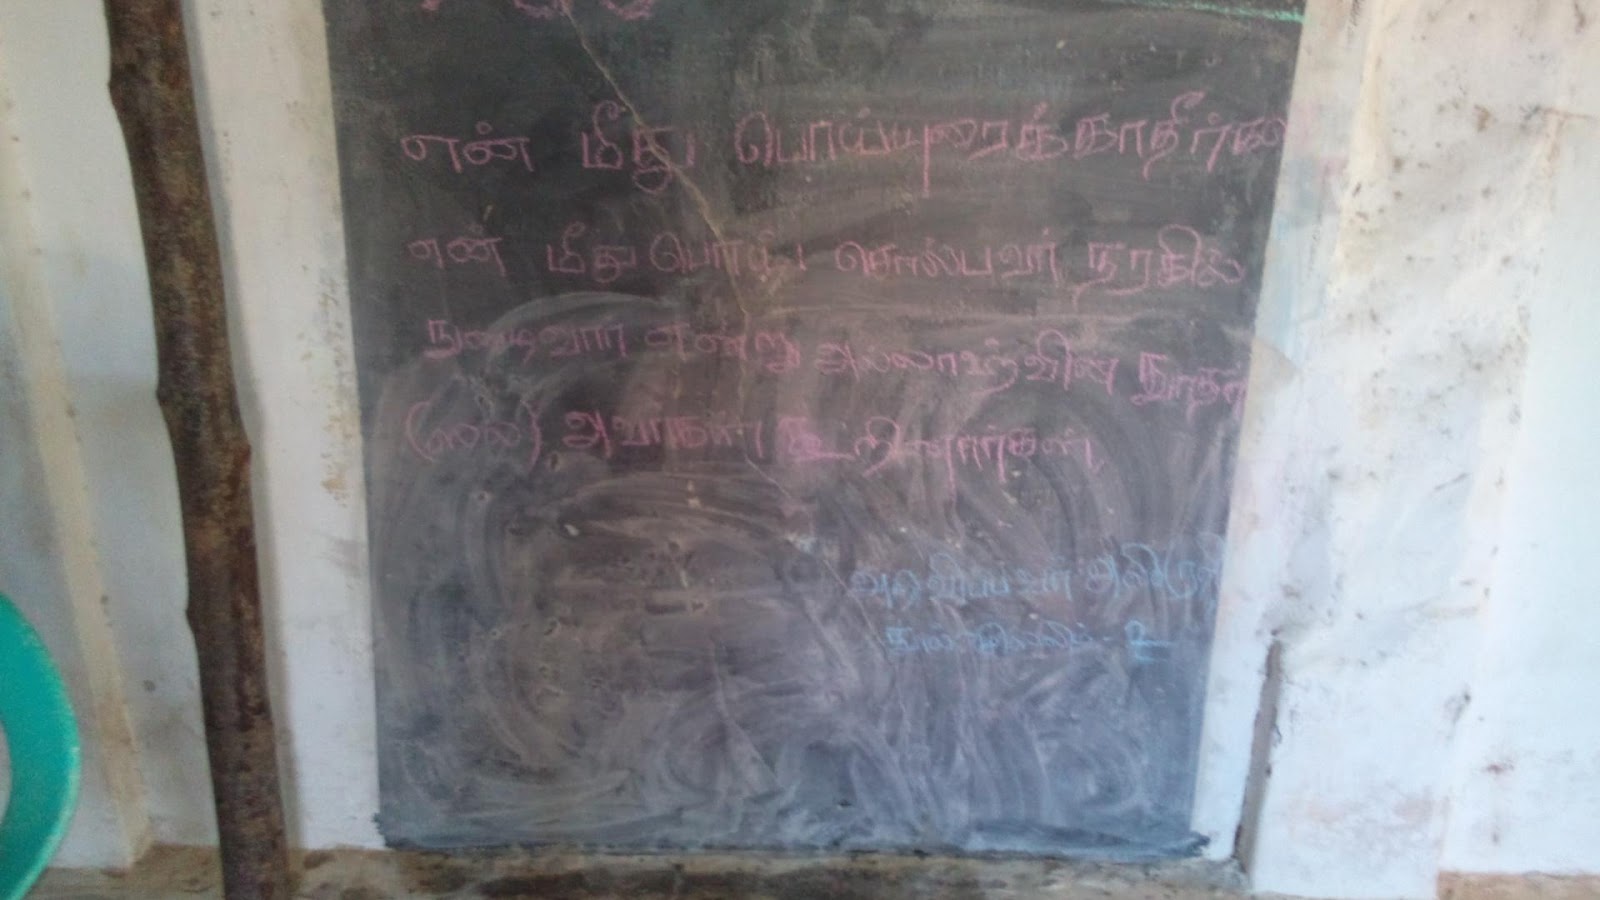 என் மீது பொய்யுரைக்காதீர்கள
என் மீது பொய் சொல்பவர் நரகில்
நுழைவார் என்று அல்லாஹ்வின் தூதர்
(ஸல்) அவர்கள் கூறினார்கள்.
அறிவிப்பவர் அலி(ரலி)
நூல் முஸ்லிம் - 2